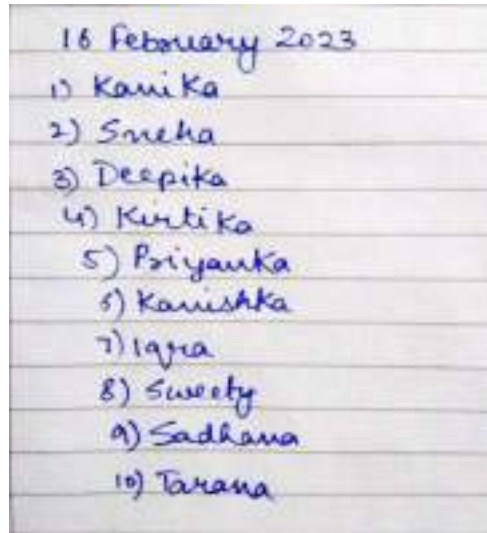 16 February 2023
1) Kanika
2) Sneha
3) Deepika
4) Kirtika
5) Priyanka
6) Kanishka
7) Iqra
8) Sweety
9) Sadhana
10) Tarana